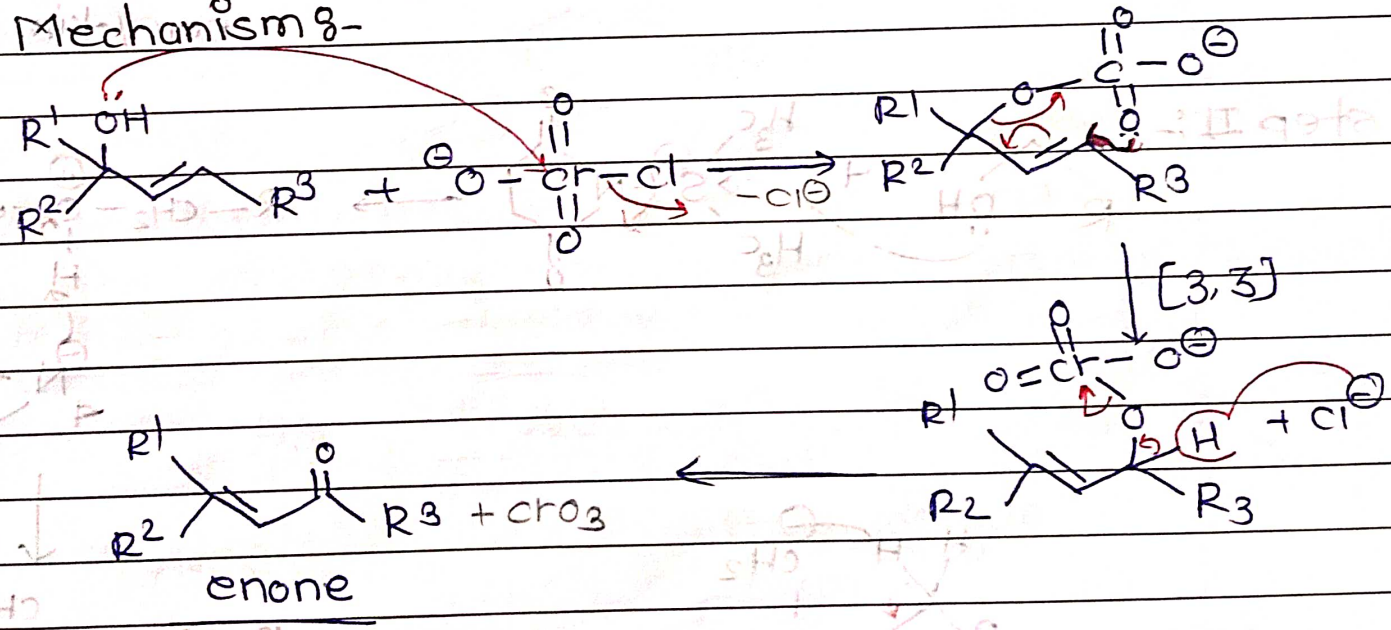 Mechanism :-
R¹ OH R² R³ + ⊖O - Cr - Cl O O → -Cl⊖
R¹ R² O C - O⊖ O O R3
[3,3]
O O = Cr - O⊖
R¹ O H + Cl⊖
R2 R3
R¹ O
R² R3 + CrO3
enone